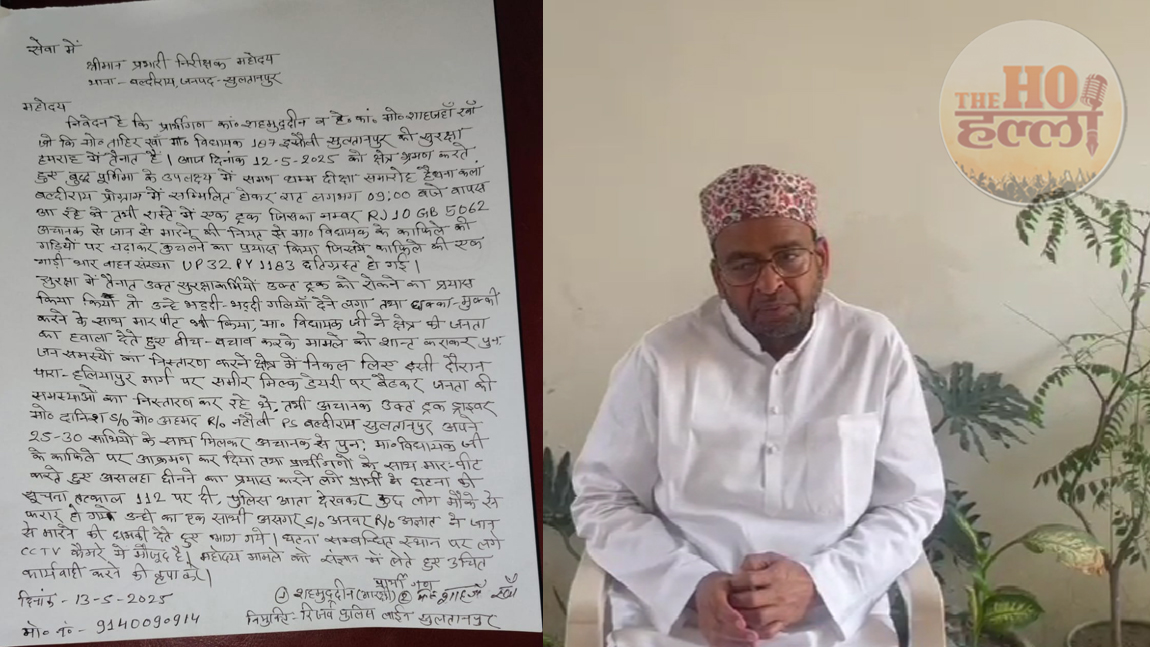 सेवा में
श्रीमान प्रभारी निरीक्षक महोदय
थाना - बल्दीराय, जनपद - सुलतानपुर
महोदय
निवेदन है कि प्रार्थीगण कां० शहमुद्दीन व हे० कां० मो० शाहजहाँ खाँ
जो कि मो० ताहिर खाँ मा० विधायक 187 इसौली सुलतानपुर की सुरक्षा
हमराह में तैनात है। आज दिनांक 12-5-2025 को क्षेत्र भ्रमण करते
हुए बुद्ध पूर्णिमा के उपलक्ष्य में समण धम्म दीक्षा समारोह हैधना कला
बल्दीराय प्रोग्राम में सम्मिलित होकर रात लगभग 09:00 बजे वापस
आ रहे थे तभी रास्ते में एक ट्रक जिसका नम्बर RJ10 GB 5062
अचानक से जान से मारने की नियत से मा० विधायक के काफिले की
गाड़ियों पर चढाकर कुचलने का प्रयास किया जिसमें काफिले की एक
गाड़ी थार वाहन संख्या UP32 PY1183 क्षतिग्रस्त हो गई।
सुरक्षा में तैनात उक्त सुरक्षाकर्मियों उक्त ट्रक को रोकने का प्रयास
किया तो उन्हे भद्दी-भद्दी गलियाँ देने लगा तथा धक्का-मुक्की
करने के साथ मार पीट भी किया, मा० विधायक जी ने क्षेत्र की जनता
का हवाला देते हुए बीच-बचाव करके मामले को शान्त कराकर पुनः
जन समस्यों का निस्तारण करने क्षेत्र में निकल लिए इसी दौरान
पारा-हलियापुर मार्ग पर समीर मिल्क डेयरी पर बैठकर जनता की
समस्याओं का निस्तारण कर रहे थे, तभी अचानक उक्त ट्रक ड्राइवर
मो० दानिश S/o मो० अहमद R/o नटौली PS बल्दीराय सुलतानपुर अपने
25-30 साथियों के साथ मिलकर अचानक से पुनः मा० विधायक जी
के काफिले पर आक्रमण कर दिया तथा प्रार्थीगणों के साथ मार-पीट
करते हुए असलहा छीनने का प्रयास करने लगे प्रार्थी ने घटना की
सूचना तत्काल 112 पर दी, पुलिस आता देखकर कुछ लोग मौके से
फरार हो गये उन्ही का एक साथी असगर S/o अनवर R/o अज्ञात ने जान
से मारने की धमकी देते हुए भाग गये। घटना सम्बन्धित स्थान पर लगे
CCTV कैमरे में मौजूद है। महोदय मामले को संज्ञान में लेते हुए उचित
कार्यवाही करने की कृपा करें।
प्रार्थी गण
① शहमुद्दीन ② शाहजहाँ खाँ
दिनांक - 13-5-2025
नियुक्ति - रिजर्व पुलिस लाईन सुलतानपुर
मो० नं० - 9140090914
THE HO
हल्ला